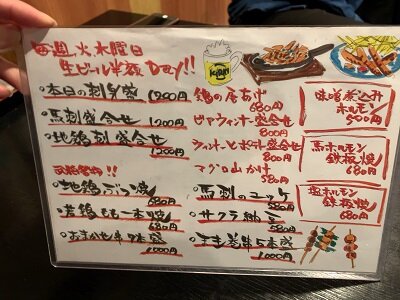 毎週火水曜日
生ビール半額Day!!
KIRIN
・本日の刺身盛
1200円
・馬刺盛合せ
1200円
・地鶏刺盛合せ
1200円
・地鶏
680円
・若鶏もも一本焼
680円
・おまかせ串7本盛
1000円
鶏の唐あげ
680円
ビアウィンナー盛合せ
800円
ウィンナーとポテト盛合せ
800円
マグロ山かけ
580円
・馬刺のユッケ
580円
・サクラ納豆
580円
・串5本盛
1000円
味噌煮込み
ホルモン
500円
馬ホルモン
鉄板焼
680円
塩ホルモン
鉄板焼
680円